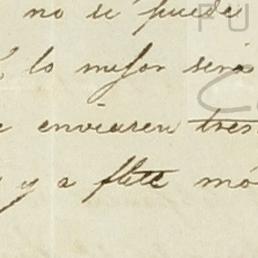 no se puede
lo mejor será
enviasen tres
y a flete mó